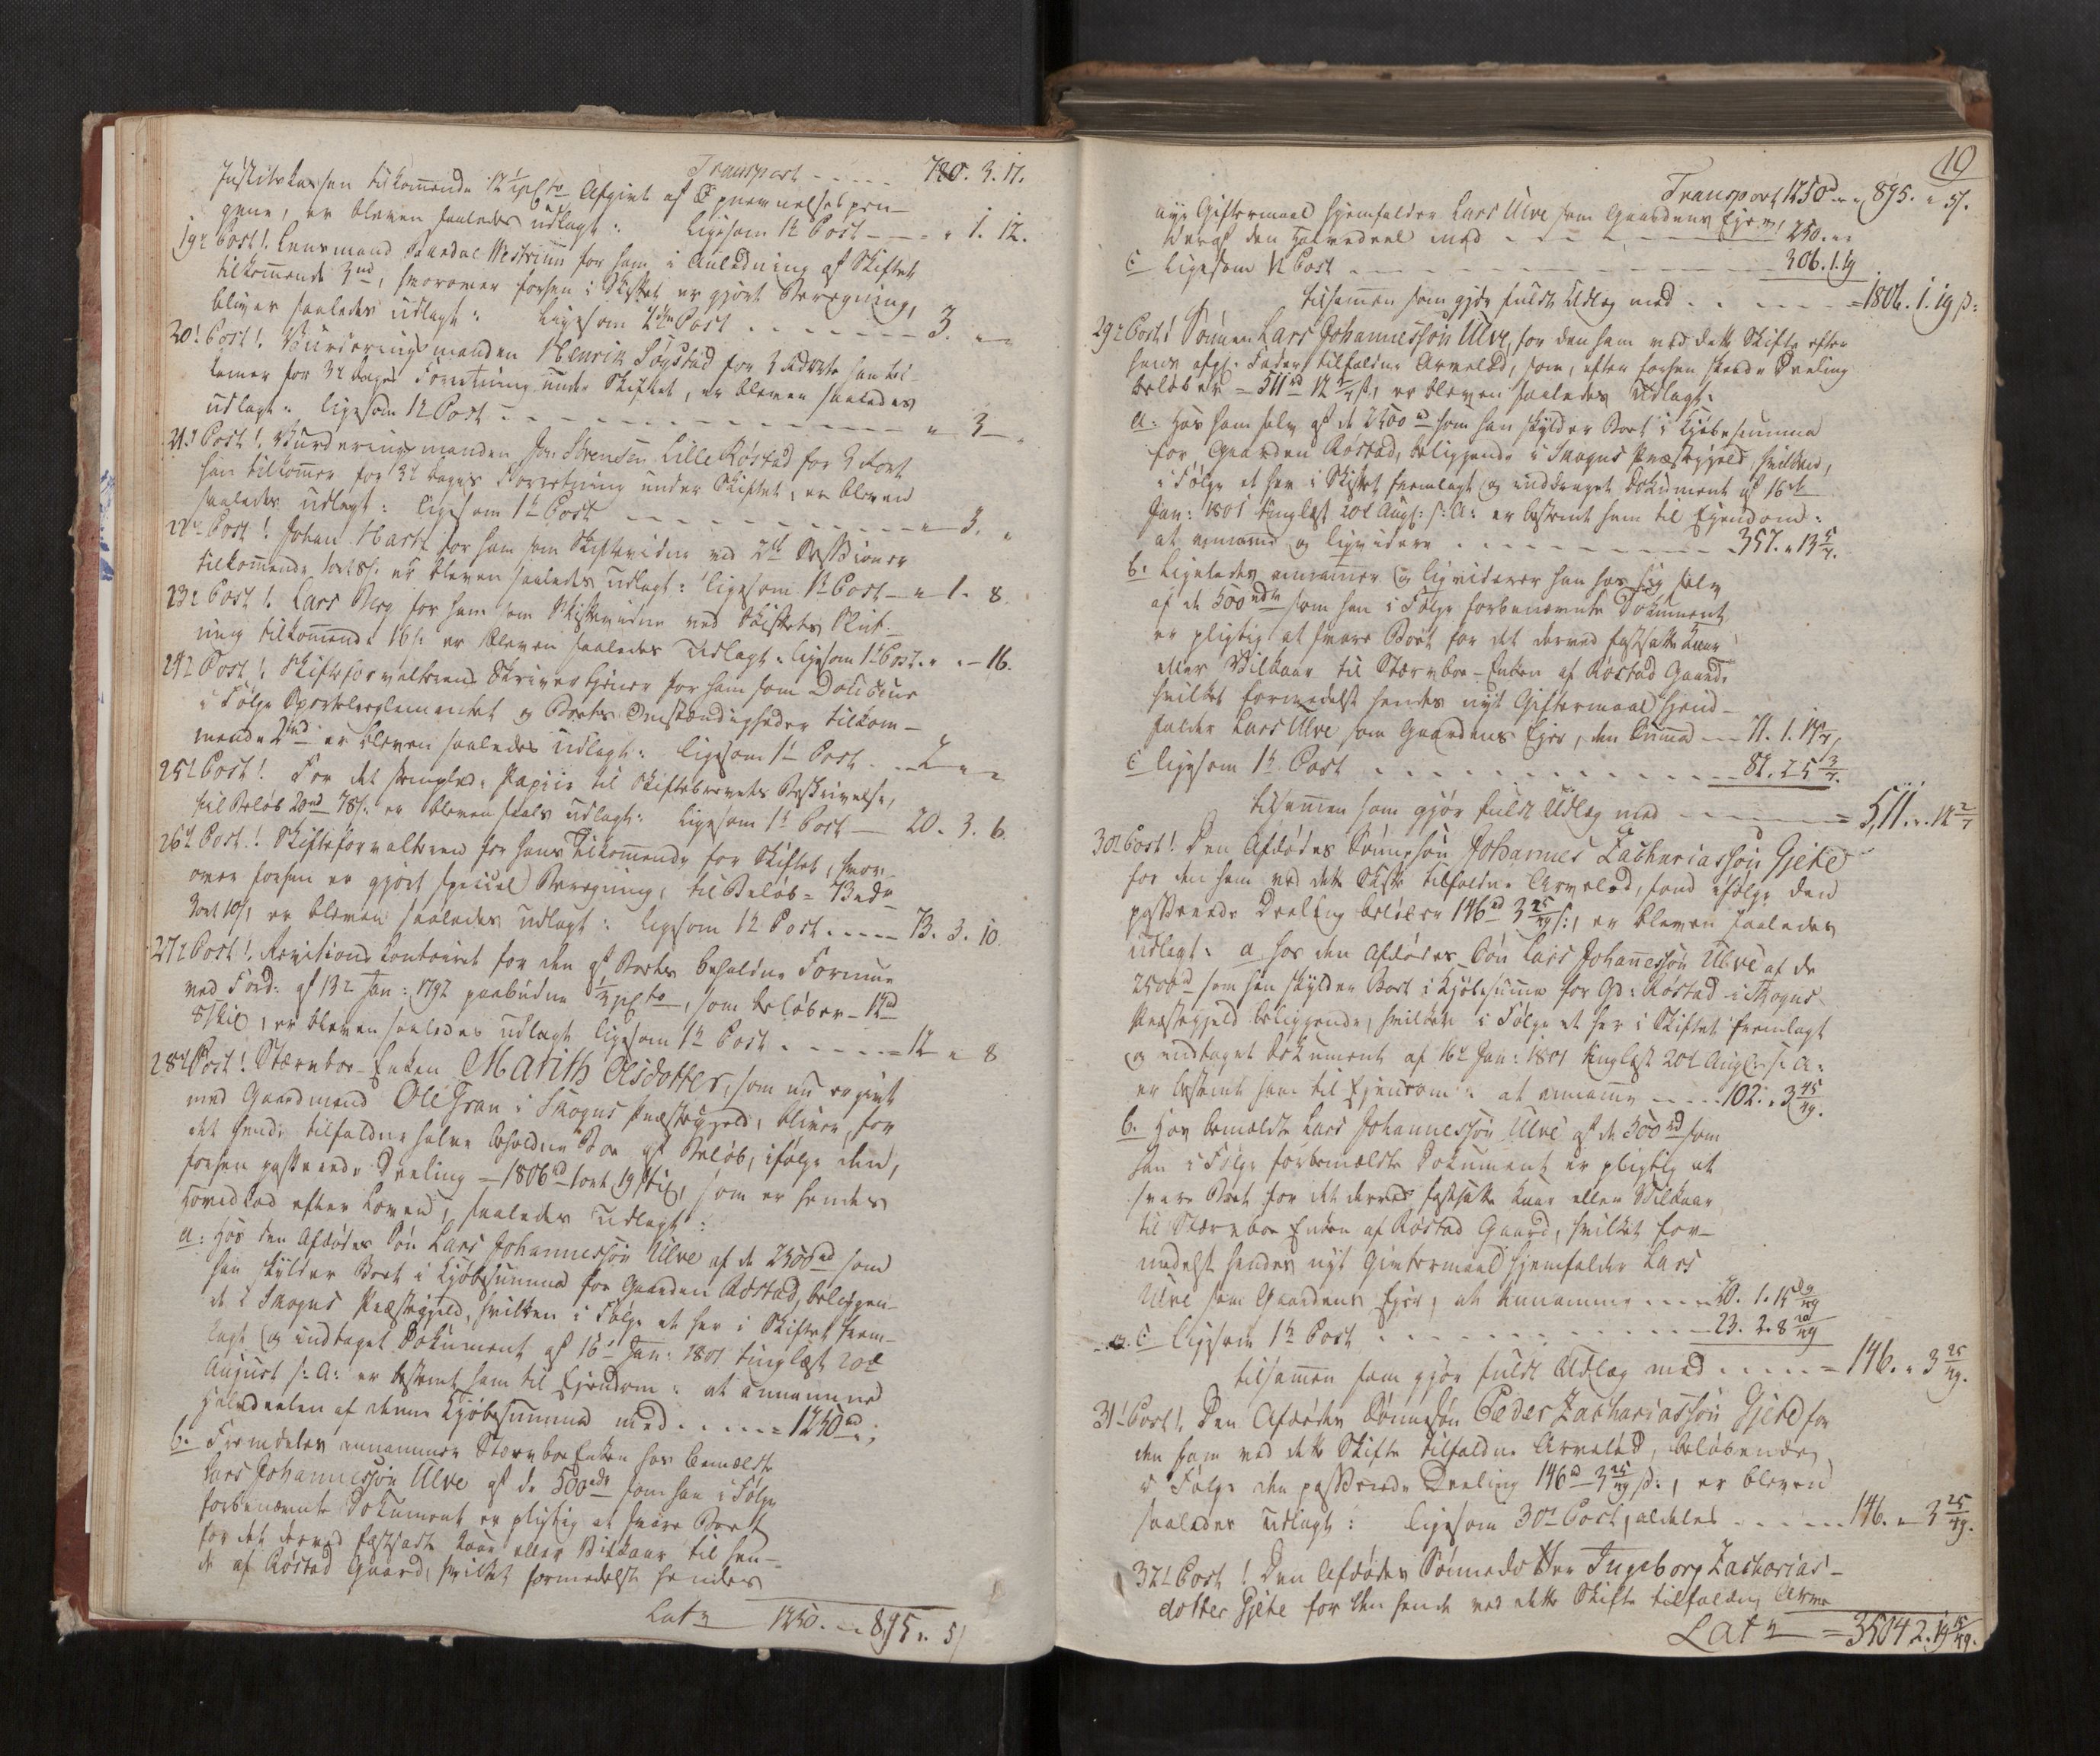 Transport - - - - - 780. 3. 17.
Justitskassen tilkommende 12 1/6 pCto Afgivt af Opnævnelsespen-
gene, er bleven saaledes udlagt: ligesom 1te Post - - - " 1. 12.
19de Post! Lensmand Baardal Westrum for ham i Anledning af Skiftet
tilkommende 3rd, hvorover forhen i Skiftet er gjort Beregning,
bliver saaledes udlagt: ligesom 1ste Post . . . . . . . 3. " "
20de Post! Vurderingsmanden Henrik Søgstad for 3 Ort han til-
kommer for 3de Dages Forretning under Skiftet, er bleven saaledes
udlagt: ligesom 1te Post - - - - - - - - - " 3 - "
21de Post! Vurderingsmanden Jon Sørensen Lille Røstad for 3 Ort
han tilkommer for 3de Dages Forretning under Skiftet, er bleven
saaledes udlagt: ligesom 1te Post - - - - - - - - " 3. "
22de Post! Johan Hartz for ham som Skiftevidne ved 2de Sessioner
tilkommende 1ort 8s. er bleven saaledes udlagt: ligesom 1te Post - " 1. 8.
23de Post! Lars Berg for ham som Skiftevidne ved Skiftets Slut-
ning tilkommende 16s. er bleven saaledes udlagt: ligesom 1te Post. " " - 16.
24de Post! Skifteforvalterens Skrivertjener for ham som Douceur
i Følge Sportelreglementet og Boets Omstændigheder tilkom-
mende 2rd er bleven saaledes udlagt: ligesom 1te Post - . . 2 " "
25de Post! For det stemplede Papiir til Skiftebrevets Beskrivelse,
til Beløb 20rd 78s. er bleven saal. udlagt: ligesom 1te Post - 20. 3. 6.
26de Post! Skifteforvalteren for hans Tilkommende for Skiftet, hvor-
over forhen er gjort speciel Beregning, til Beløb = 73rdr
3ort 10s, er bleven saaledes udlagt: ligesom 1te Post . . . . . 73. 3. 10.
27de Post! Revisions Contoiret for den af Boets beholdne Formue
ved Ford: af 13de Jan: 1792 paabudne 1/3 pCto, som beløber - 12rd
8skil, er bleven saaledes udlagt ligesom 1te Post . . . . . = 12 " 8
28de Post! Stervboe-Enken Marith Olsdotter, som nu er givt
med Gaardmand Ole Gran i Skogns Præstegjeld, bliver, for
det hende tilfaldne halve beholdne Boe af Beløb, ifølge den,
forhen passerede Deeling = 1806rd 1ort 19skil, som er hendes
Hovedlod efter Loven, saaledes udlagt:
a: Hos den Afdødes Søn Lars Johannessøn Ulve af de 2500rd som
han skylder Boet i Kjøbesumma for Gaarden Røstad, beliggen-
de i Skogns Præstegjeld, hvilken i Følge et her i Skiftet frem-
lagt og indtaget Dokument af 16de Jan: 1801 tinglæst 20de
August s: A: er bestemt ham til Ejendom: at annamme
Halvdeelen af denne Kjøbesumma med . . . . . = 1250rd " ;
b. Fremdeles annammer Stervboe Enken hos bemældte
Lars Johannessøn Ulve af de 500rdr som han i Følge
forbenævnte Dokument er pligtig at svare Boet
for det derved fastsatte Kaar eller Vilkaar til hen-
de af Røstad Gaard, hvilket formedelst hendes
Lat. 1250. " " 895 ". 5s
19
Transport 1250rd " " 895. " 5s.
nye Giftermaal hjemfalder Lars Ulve som Gaardens Ejer,
den Halvedeel med . . . . . . . 250. " "
c ligesom 1te Post - - - - - - - - - 306. 1. 19
tilsammen som gjør fuldt Udlæg med . . . . . . = 1806. 1. 19 s:
29de Post! Sønnen Lars Johannessøn Ulve, for den ham ved dette Skifte efter
hans afg: Fader tilfaldne Arvelod, som, efter forhen skeede Deeling
beløber = 511rd 12 2/7 s, er bleven saaledes udlagt:
a: Hos ham selv af de 2500rd som han skylder Boet i Kjøbesumma
for Gaarden Røstad, beliggende i Skogns Præstegjeld, hvilken,
i Følge et her i Skiftet fremlagt og inddraget Dokument af 16de
Jan: 1801 tinglæst 20de Aug: s: A: er bestemt ham til Ejendom:
at annamme og liqvidere . . . . . . . . . 357. " 13 5/7.
b. Ligeledes annammer og liqviderer han hos sig selv
af de 500rdr som han i Følge forbenævnte Dokument
er pligtig at svare Boet for det derved fastsatte Kaar
eller Vilkaar til Stervboe-Enken af Røstad Gaard,
hvilket formedelst hendes nyt Giftermaal hjem-
falder Lars Ulve som Gaardens Ejer, den Summa - - - 71. 1. 17 1/7,
c ligesom 1te Post . . . . . . . . . . . . . 82. 2. 5 3/7.
tilsammen som gjør fuldt Udlæg med - - - - - - = 511. ". 12 2/7
30de Post! Den Afdødes Sønnesøn Johannes Zachariassøn Gjete
for den ham ved dette Skifte tilfaldne Arvelod, som ifølge den
passerede Deeling beløber 146rd 3 25/49 s:, er bleven saaledes
udlagt: a hos den Afdødes Søn Lars Johannessøn Ulve af de
2500rd som han skylder Boet i Kjøbesumma for Gd: Røstad i Skogns
Præstegjeld beliggende, hvilken i Følge et her i Skiftet fremlagt
og indtaget Dokument af 16de Jan: 1801 tinglæst 20de Aug: s: A:
er bestemt ham til Ejendom: at annamme - - . . . 102. " 3 45/49.
b. Hos bemældte Lars Johannessøn Ulve af de 500rd som
han i Følge forbemældte Dokument er pligtig at
svare Boet for det derved fastsatte Kaar eller Vilkaar
til Stervboe Enken af Røstad Gaard, hvilket for-
medelst hendes nyt Giftermaal hjemfalder Lars
Ulve som Gaardens Ejer, at annamme . . . . 20. 1. 15 /49
c ligesom 1te Post . . . . . . . . . . . . . . 23. 2. 8 /49
tilsammen som gjør fuldt Udlæg med . . . . . = 146. " 3 25/49.
31te Post! Den Afdødes Sønnesøn Peder Zachariassøn Gjete for
den ham ved dette Skifte tilfaldne Arvelod, beløbende,
i Følge den passerede Deeling 146rd 3 25/49 s:, er bleven
saaledes udlagt: ligesom 30te Post, aldeles . . . . . . . 146. " 3 25/49.
32te Post! Den Afdødes Sønnedotter Ingeborg Zacharias-
dotter Gjete for den hende ved dette Skifte tilfaldne Arve
Lat. = 3504 2. 19 15/49.